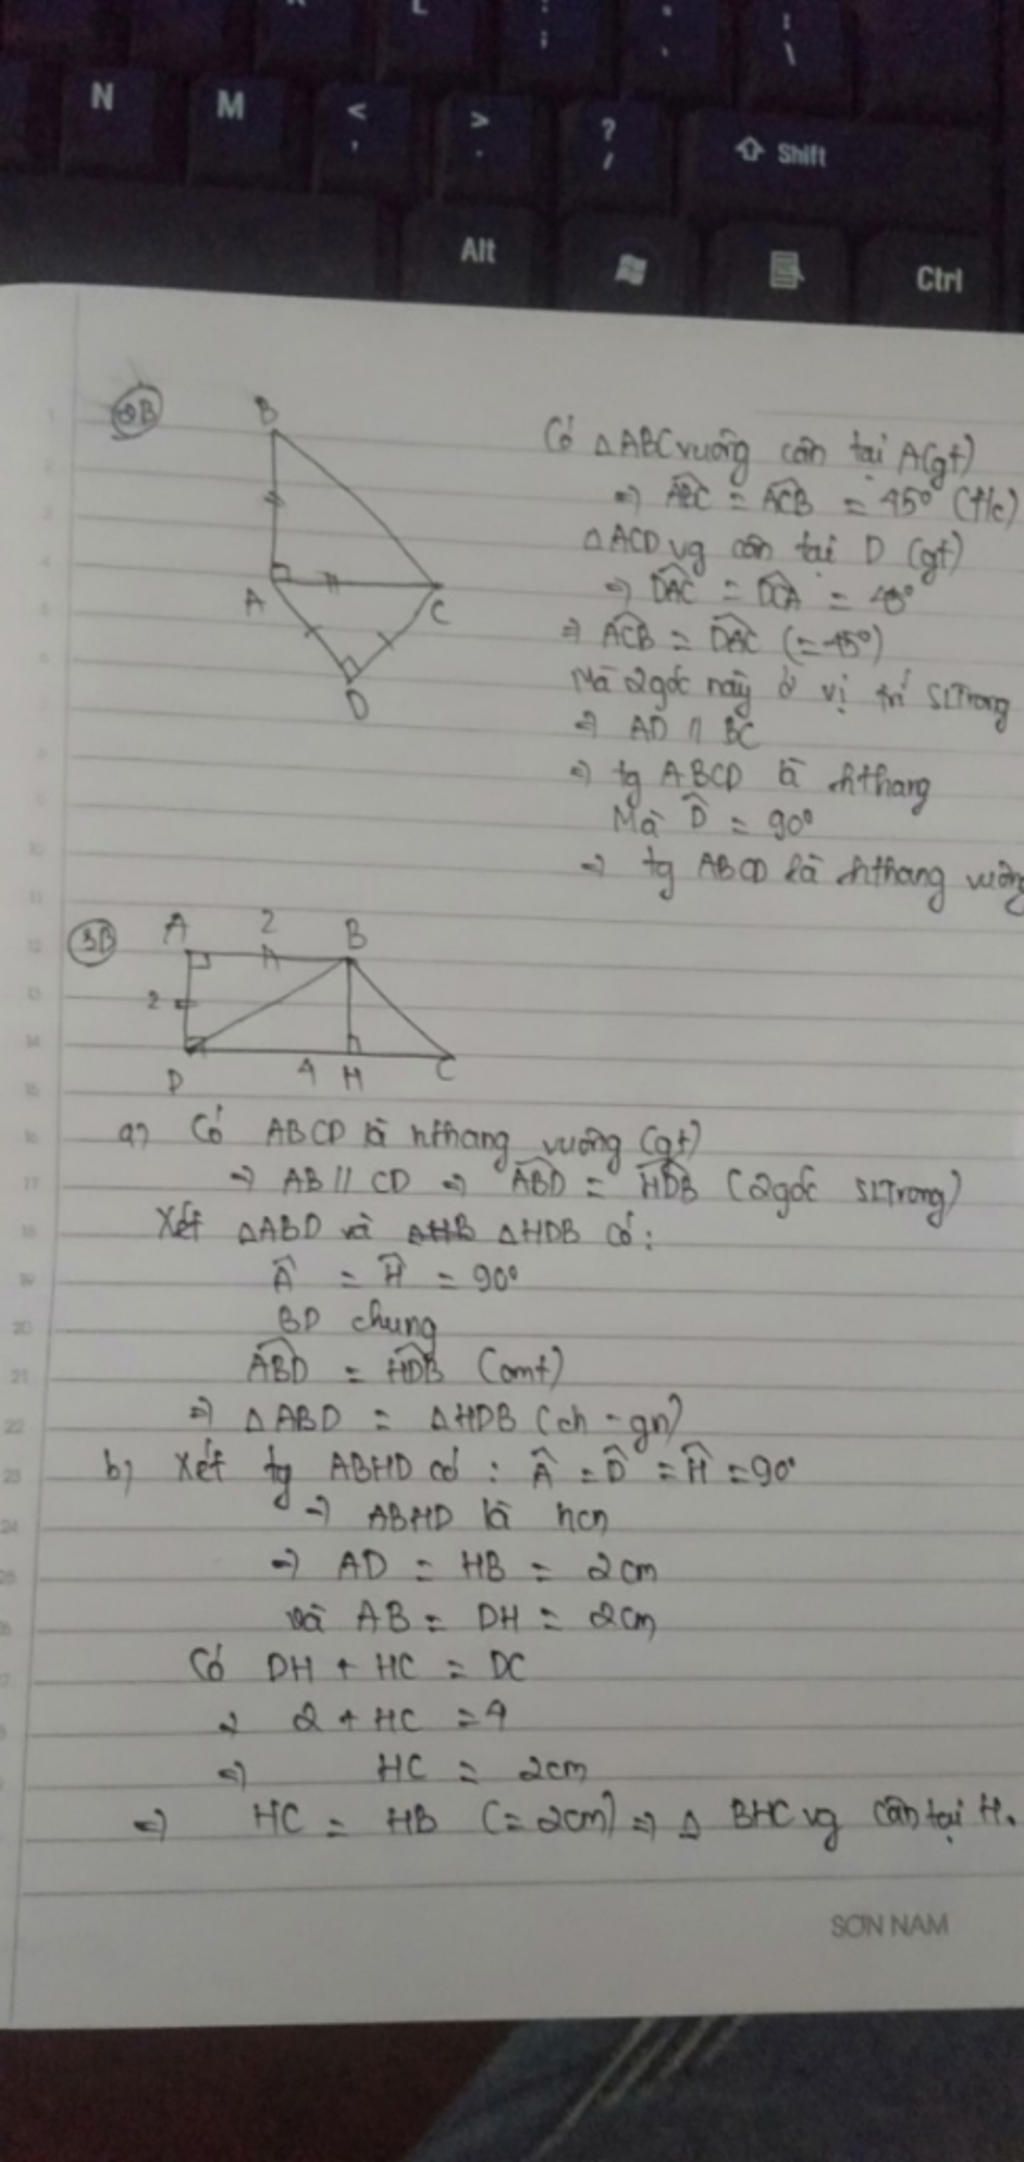 N M < , > . ? / Shift
Alt Ctrl
2B
B
A
C
D
Có △ABC vuông cân tại A (gt)
⇒ ABC = ACB = 45° (t/c)
△ACD vg cân tại D (gt)
⇒ DAC = DCA = 45°
⇒ ACB = DAC (= 45°)
Mà 2 góc này ở vị trí SLTrong
⇒ AD // BC
⇒ tg ABCD là hthang
Mà D̂ = 90°
⇒ tg ABCD là hthang vuông
3B
A 2 B
2
D 4 H C
a) Có ABCD là hthang vuông (gt)
⇒ AB // CD ⇒ ABD = HDB (2 góc SLTrong)
Xét △ABD và △HDB có:
Â = Ĥ = 90°
BD chung
ABD = HDB (cmt)
⇒ △ABD = △HDB (ch - gn)
b) Xét tg ABHD có : Â = D̂ = Ĥ = 90°
⇒ ABHD là hcn
⇒ AD = HB = 2cm
và AB = DH = 2cm
Có DH + HC = DC
⇒ 2 + HC = 4
⇒ HC = 2cm
⇒ HC = HB (= 2cm) ⇒ △ BHC vg cân tại H.
SON NAM